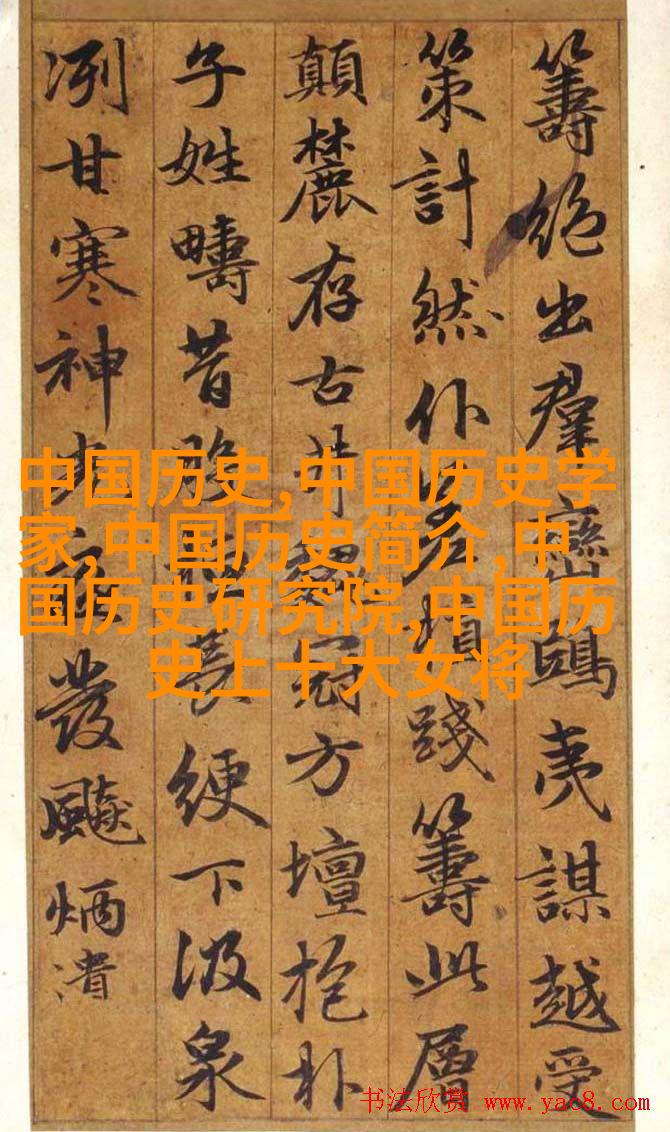 籌絶出羣鴟夷謀越受
策計然仆踐籌此層
顛麓存古井冠方壇抱朴
子姓疇昔長綆下汲泉
冽甘寒神發飈炳潰
中国历史,中国历史学
家,中国历史简介,中
国历史研究院,中国历
史上十大女将
书法欣赏 www.yac8.com